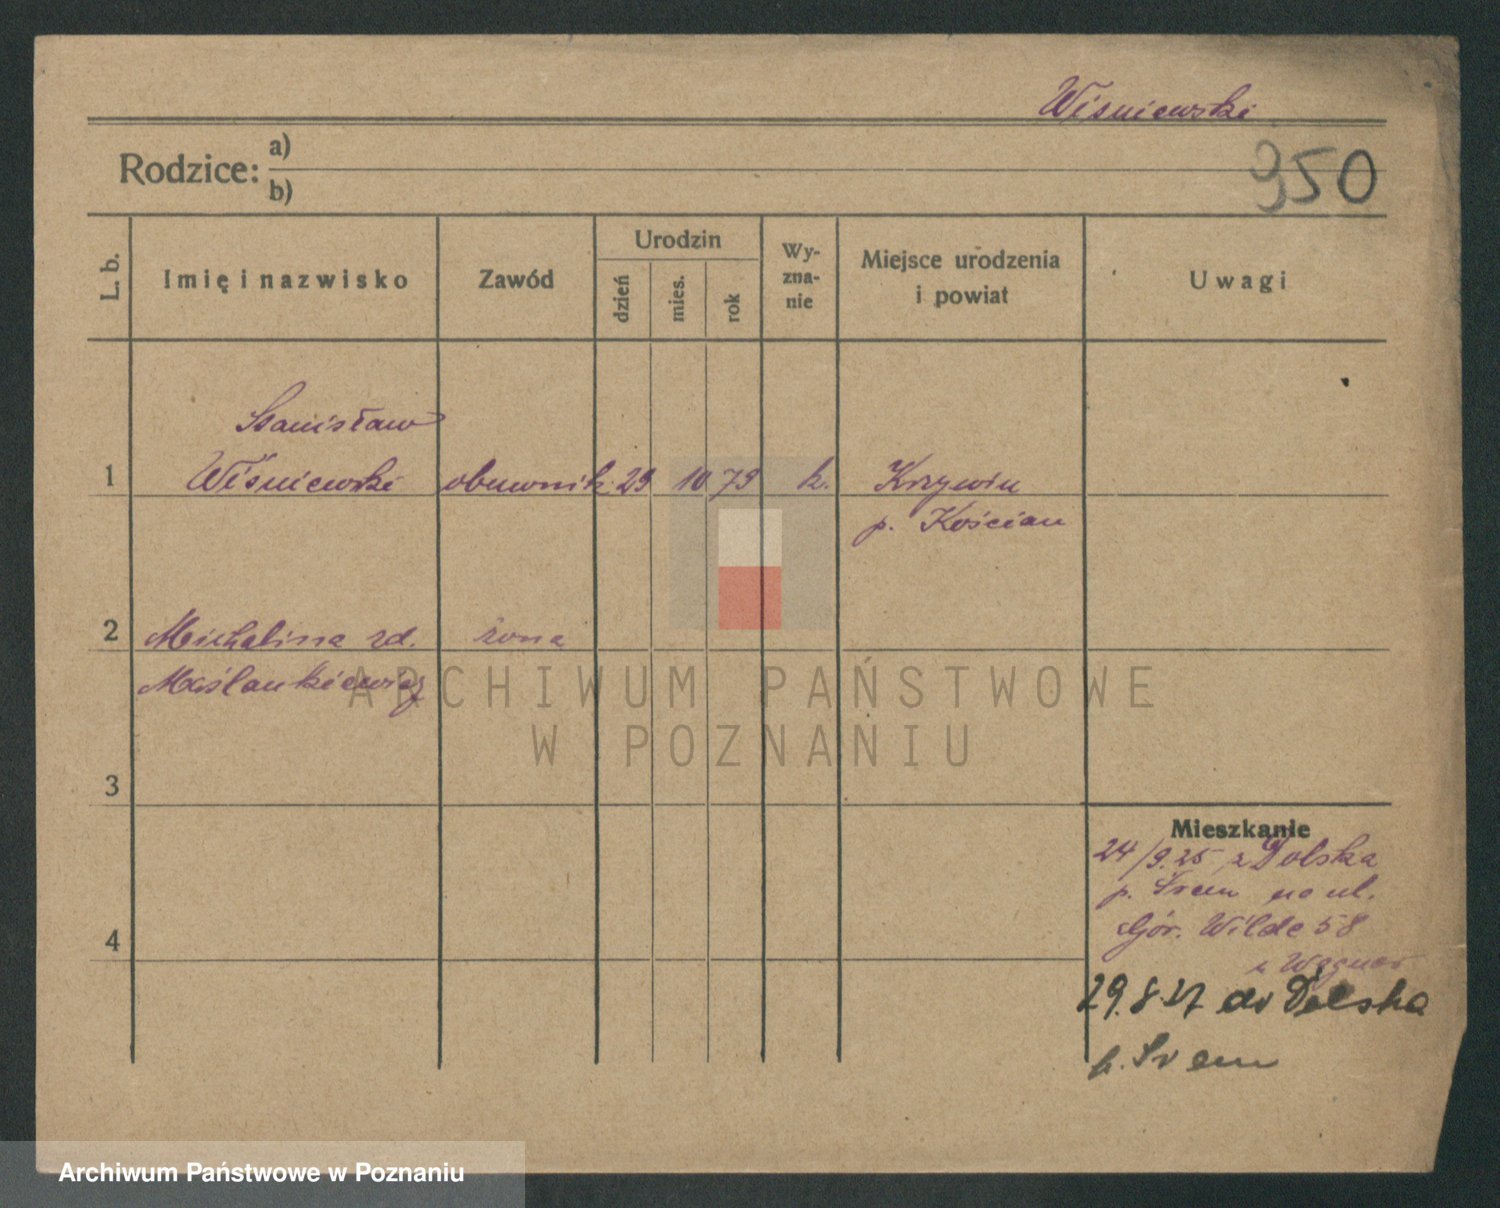 Wiśniewski
950
Rodzice: a)
b)
L. b.
Imię i nazwisko
Zawód
Urodzin
dzień
mies.
rok
Wy-
zna-
nie
Miejsce urodzenia
i powiat
Uwagi
Stanisław
1 Wiśniewski obuwnik 29 10 79 k. Krzywin
p. Kościan
2 Michalina zd. żona
Maślankiewicz
ARCHIWUM PAŃSTWOWE
W POZNANIU
3
Mieszkanie
24/9.25 z Dolska
p. Śrem na ul.
Gór. Wilda 58
4
29.8.27 do Dolska
p. Śrem
Archiwum Państwowe w Poznaniu